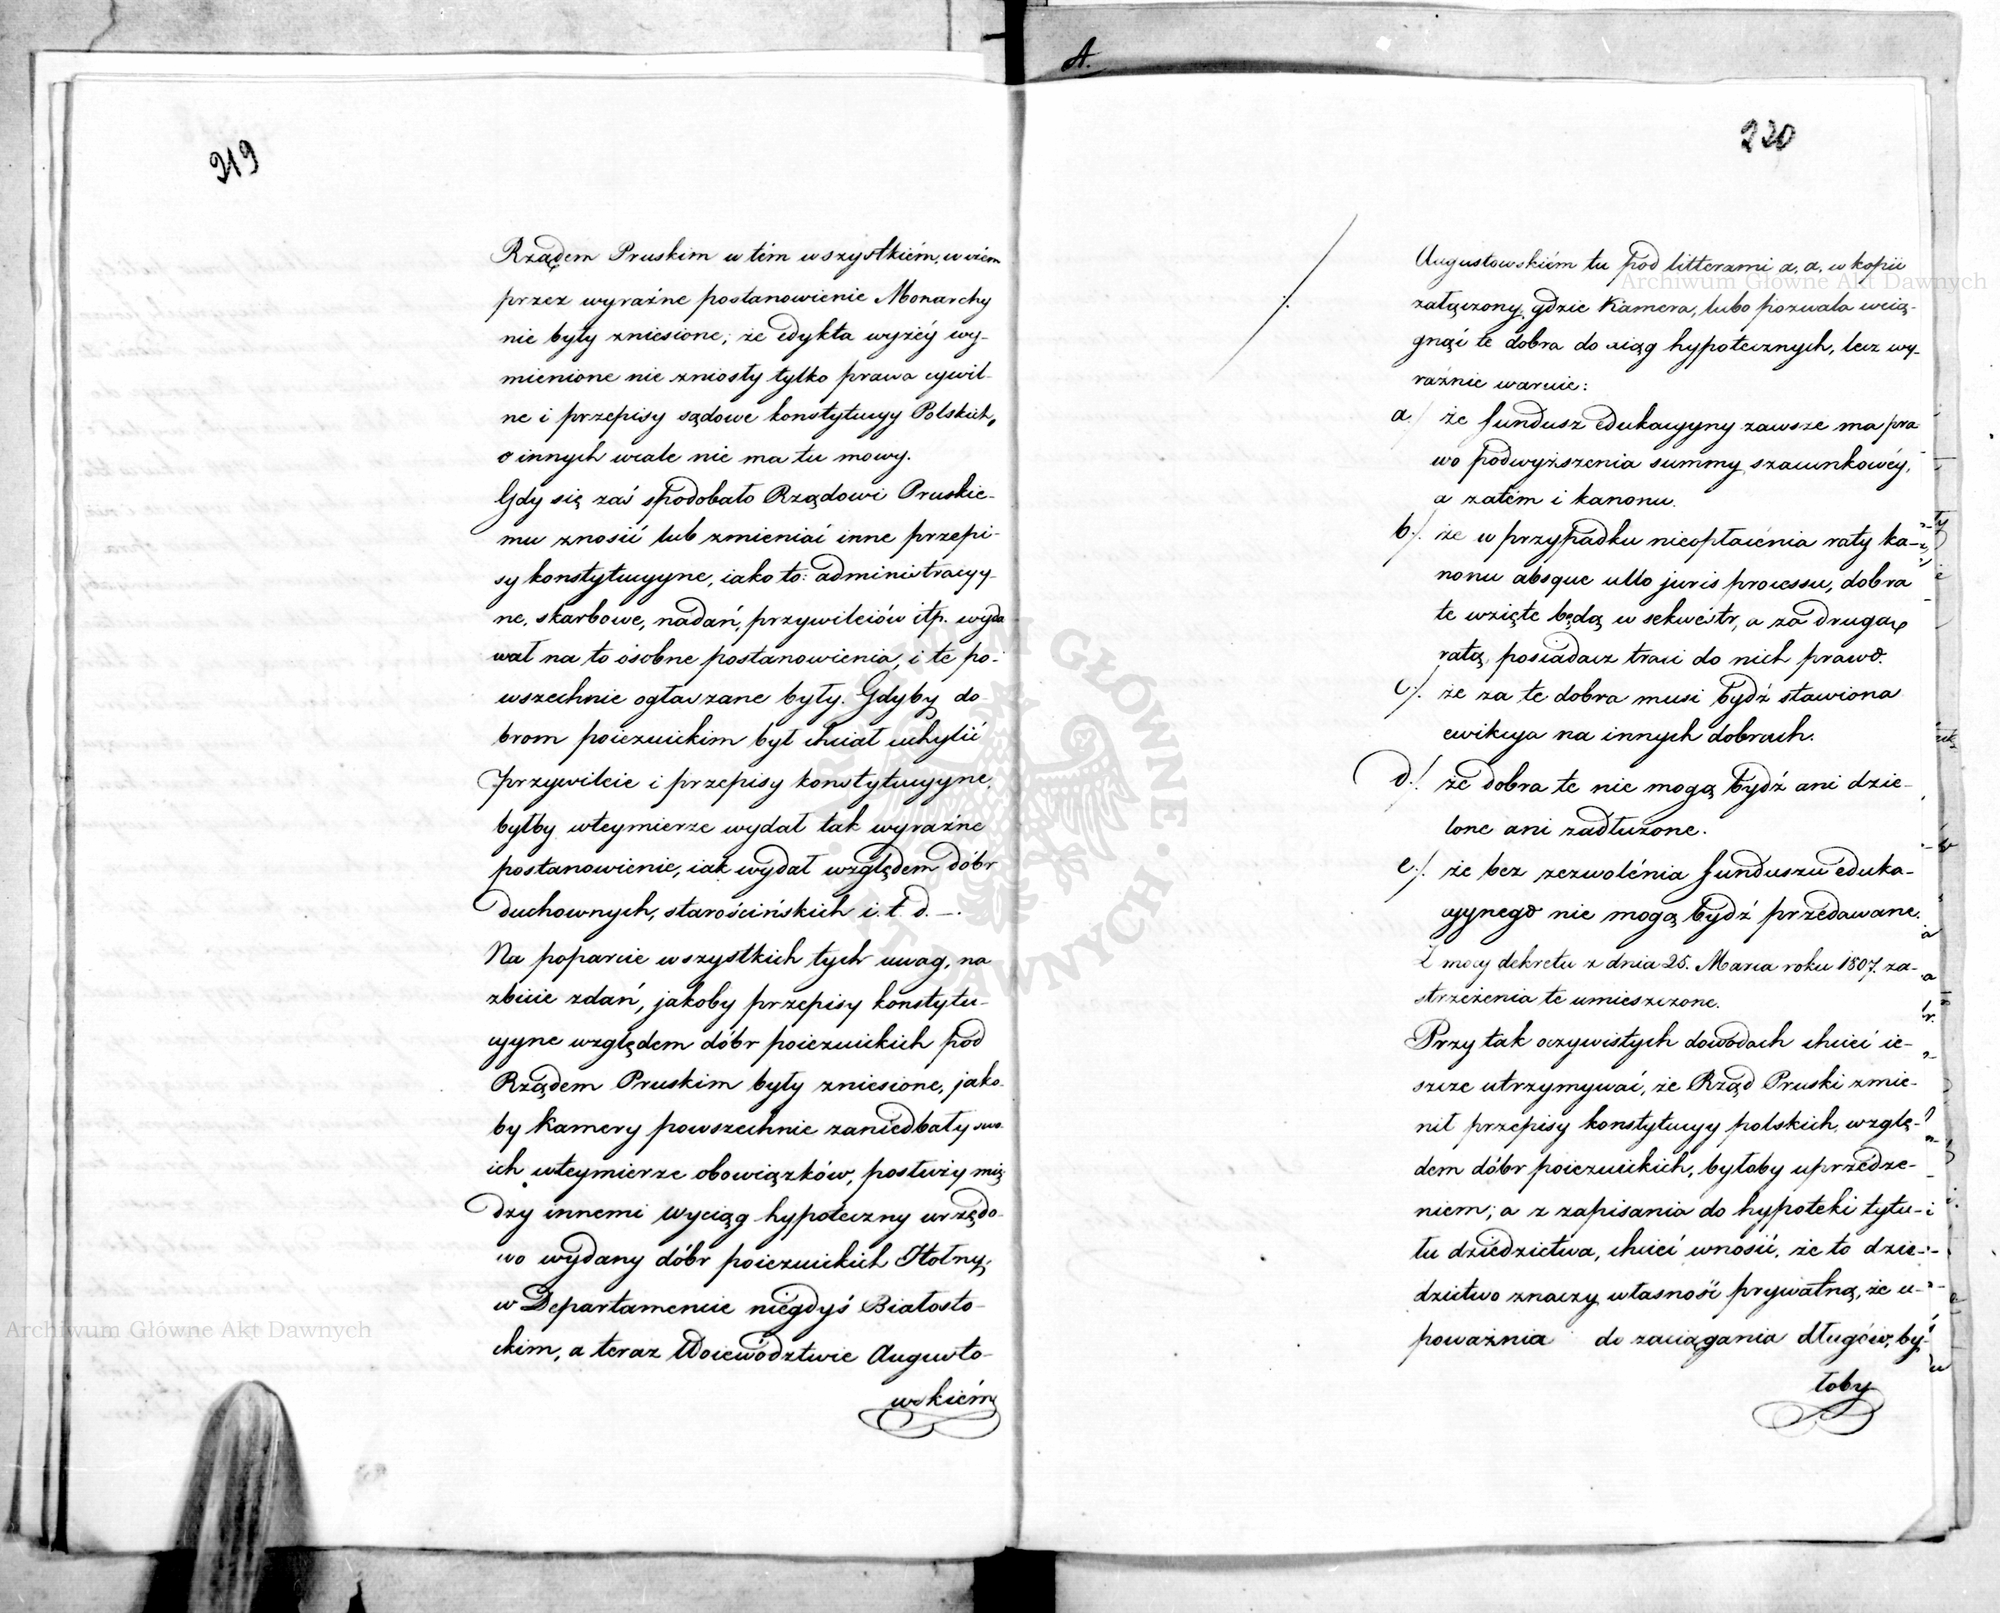 219
Rządem Pruskim w tém wszystkiém, w czém
przez wyraźne postanowienie Monarchy
nie były zniesione; że edykta wyżéy wy-
mienione nie zniosły tylko prawa cywil-
ne i przepisy sądowe konstytucyy Polskich,
o innych wcale nie ma tu mowy.
Gdy się zaś spodobało Rządowi Pruskie-
mu znosić lub zmieniać inne przepi-
sy konstytucyyne, iako to: administracyy-
ne, skarbowe, nadań, przywileiów itp. wyda
wał na to osobne postanowienia, i te po-
wszechnie ogłaszane były. Gdyby do-
brom poiezuickim był chciał uchylić
przywileie i przepisy konstytucyyne,
byłby wteymierze wydał tak wyraźne
postanowienie, iak wydał względem dóbr
duchownych, starościńskich i. t. d. —.
Na poparcie wszystkich tych uwag, na
zbicie zdań, jakoby przepisy konstytu-
cyyne względem dóbr poiezuickich pod
Rządem Pruskim były zniesione, jako-
by Kamery powszechnie zaniedbały swo-
ich wteymierze obowiązków, posłuży mię
dzy innemi wyciąg hypoteczny urzędo-
wo wydany dóbr poiezuickich Hołny,
w Departamencie niegdyś Białosto-
ckim, a teraz Woiewództwie Augusto-
wskiém
A.
220
Augustowskiém tu pod litterami a, a, w kopii
załączony, gdzie Kamera, lubo pozwala wcią-
gnąć te dobra do xiąg hypotecznych, lecz wy-
raźnie waruie:
a/ że fundusz edukacyyny zawsze ma pra-
wo podwyższenia summy szacunkowéy,
a zatém i kanonu.
b/. że w przypadku nieopłacénia raty ka-
nonu absque ullo juris processu, dobra
te wzięte będą w sekwestr, a za drugą
ratą posiadacz traci do nich prawo.
c/. że za te dobra musi bydź stawiona
ewikcya na innych dobrach.
d/. że dobra te nie mogą bydź ani dzie-
lone ani zadłużone.
e/. że bez zezwolénia funduszu eduka-
cyynego nie mogą bydź przedawane.
Z mocy dekretu z dnia 25. Marca roku 1807. za-
strzeżenia te umieszczone.
Przy tak oczywistych dowodach chcieć ie-
szcze utrzymywać, że Rząd Pruski zmie-
nił przepisy konstytucyy polskich wzglę-
dem dóbr poiezuickich, byłoby uprzedze-
niem; a z zapisania do hypoteki tytu-
łu dziedzictwa, chcieć wnosić, że to dzie-
dzictwo znaczy własność prywatną, że u-
poważnia do zaciągania długów, by-
łoby
Archiwum Główne Akt Dawnych
Archiwum Główne Akt Dawnych